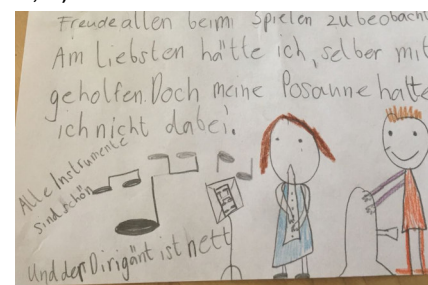 Freude allen beim Spielen zu beobacht
Am liebsten hätte ich, selber mit
geholfen. Doch meine Posaune hatte
ich nicht dabei.
Alle Instrumente
sind schön
Und der Dirigänt ist nett